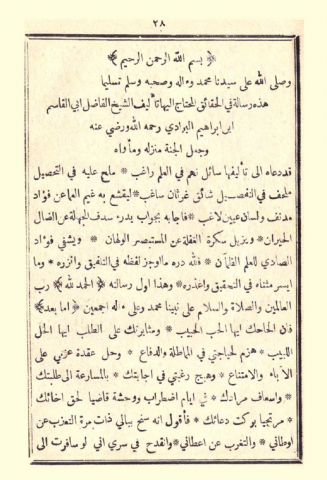 ٢٨
﴿ بسم الله الرحمن الرحيم ﴾
وصلى الله على سيدنا محمد وءاله وصحبه وسلم تسليما
هذه رسالة في الحقائق المحتاج اليها تأليف الشيخ الفاضل ابي القاسم
ابن ابراهيم البرادي رحمه الله ورضي عنه
وجعل الجنة منزله ومأواه
قد دعاه الى تأليفها سائل نهم في العلم راغب * ملح عليه في التحصيل
ملحف في التفصيل شائق غرثان ساغب * ليقشع به غيم العما عن فؤاد
مدنف ولسان عيين لاغب * فاجابه بجواب يدرء سدف الجهالة عن الضال
الحيران * ويزيل سكرة الغفلة عن المستبصر الولهان * ويشفي فؤاد
الصادي للعلم الظمآن * فلله دره ما اوجز لفظه في التنفيق واغزره * وما
ايسر مثناه في التحقيق واعذره * وهذا اول رسالته ﴿ الحمد لله ﴾ رب
العالمين والصلاة والسلام على نبينا محمد وعلى ءاله اجمعين ﴿ اما بعد ﴾
فان الحاحك ايها الحب الحبيب * ومثابرتك على الطلب ايها الخل
اللبيب * هزم لجاجتي في المماطلة والدفاع * وحل عقدة عزمي على
الاباء والامتناع * وهيج رغبتي في اجابتك * بالمسارعة الى طلبتك
* واسعاف مرادك * في ايام اضطراب ووحشة قاضيا لحق اخائك
* مرتجيا بركت دعائك * فأقول انه سنح ببالي ذات مرة التعزب عن
اوطاني * والتغرب عن اعطاني * وانقدح في سري اني لو سافرت الى